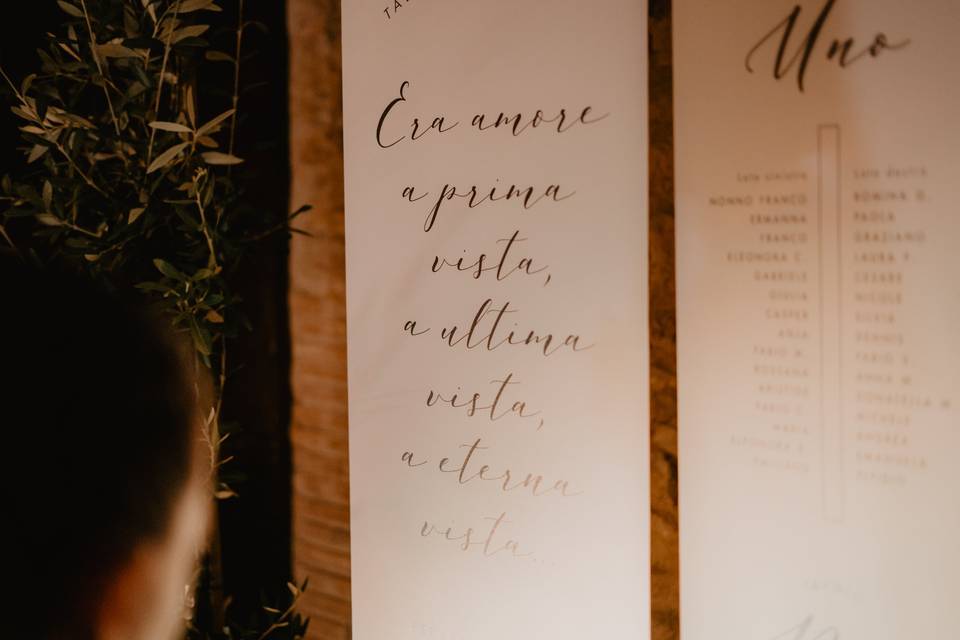 Era amore
a prima
vista,
a ultima
vista,
a eterna
vista...
Uno
Lato sinistro
NONNO FRANCO
ERMANNA
FRANCO
ELEONORA C.
GABRIELE
GIULIA
CASPER
ANJA
FABIO M.
ROSSANA
ARISTIDE
FABIO C.
MARIA
ELEONORA S.
Lato destro
ROMINA G.
PAOLA
GRAZIANO
LAURA P.
CESARE
NICOLE
SILVIA
DENNIS
FABIO S.
ANNA M.
DONATELLA M.
MICHELE
ANDREA
EMANUELA